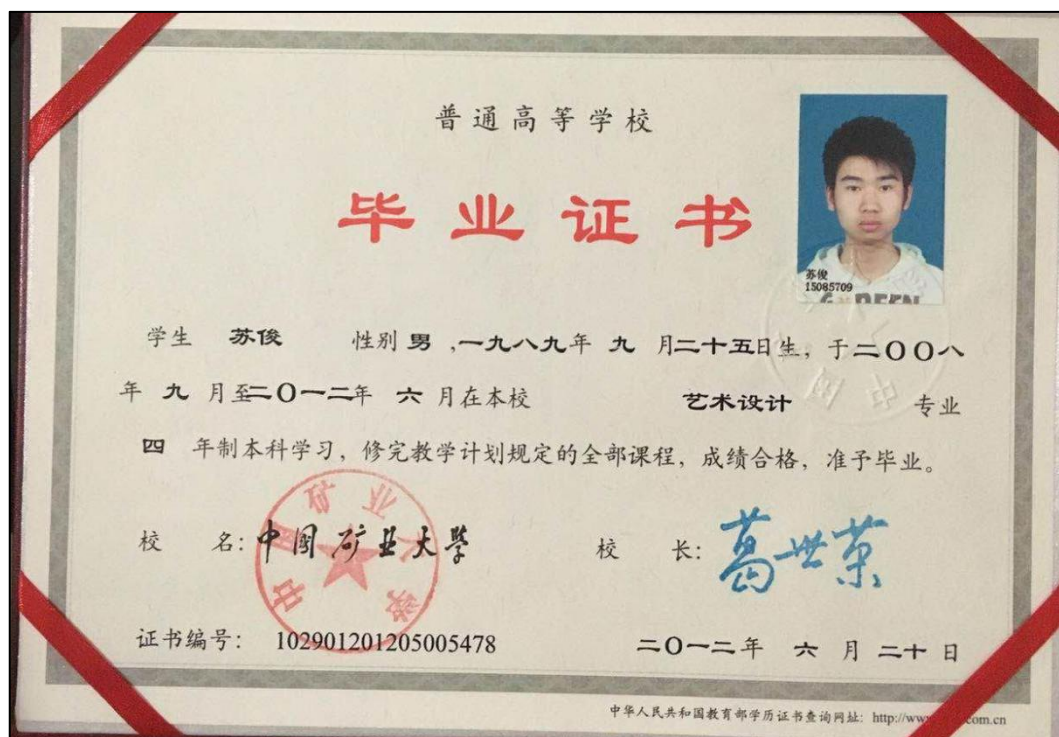 普通高等学校
毕业证书
苏俊
15085709
学生 苏俊 性别 男 ,一九八九年 九 月二十五日生，于二〇〇八
年 九 月至二〇一二年 六 月在本校 艺术设计 专业
四 年制本科学习，修完教学计划规定的全部课程，成绩合格，准予毕业。
校 名：中国矿业大学 校 长：葛世荣
中国矿业大学
证书编号： 102901201205005478 二〇一二年 六 月 二十 日
中华人民共和国教育部学历证书查询网址：http://www com.cn